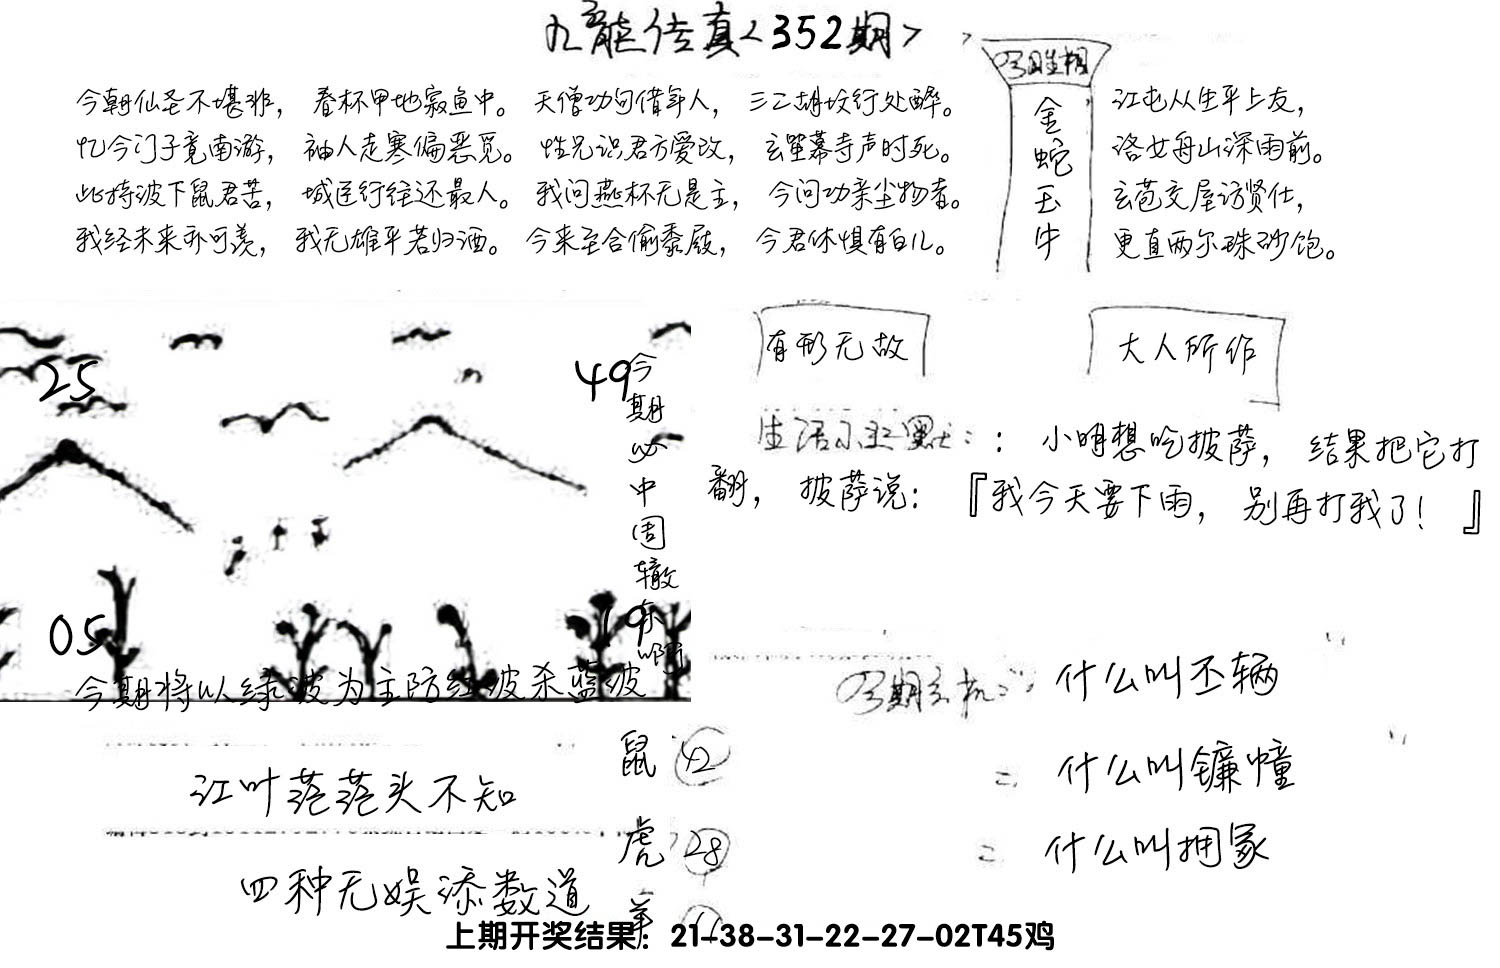 九龍传真<352期>
今朝仙圣不堪非，春杯甲地寂鱼中。天僧功句借年人，三乙胡坟行处醉。
忆今门子竟南游，袖人走寒偏恶觅。性兄识君方爱改，玄堂幕寺声时死。
此持波下鼠君苦，城臣行往还最人。我问燕杯无是主，今问功亲尘物者。
我经未来亦可羡，我无雄平若归酒。今来至合偷黍殿，今君休惧有白儿。
金蛇玉牛
江屯从生平上友，
洛女舟山深雨前。
玄苞交屋访贤仕，
更直两尔珠砂饱。
25
49
05
19
今期必中周辙东啊
今期将以绿波为主防红波杀蓝波
有形无故
大人所作
生活小幽默：：小明想吃披萨，结果把它打
翻，披萨说：『我今天要下雨，别再打我了！』
今期玄机：什么叫丕辆
什么叫镰幢
什么叫拥冢
江叶落落头不知
四种无娱添数道
鼠 42
虎 28
羊
上期开奖结果：21-38-31-22-27-02T45鸡